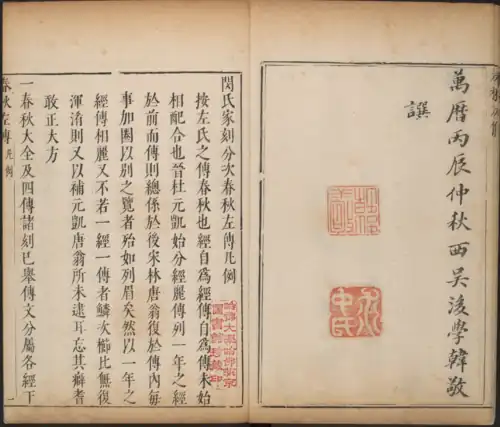 萬曆丙辰仲秋西吳後學韓敬
譔
閔氏家刻分次春秋左傳凡例
按左氏之傳春秋也經自為經傳自為傳未始
相配合也晉杜元凱始分經麗傳列一年之經
於前而傳則總係於後宋林唐翁復於傳內每
事加圈以別之覽者殆如列眉矣然以一年之
經傳相麗又不若一經一傳者鱗次櫛比無復
渾淆則又以補元凱唐翁所未逮耳忘其癖者
敢正大方
一春秋大全及四傳諸刻已舉傳文分屬各經下
春秋左傳 凡例